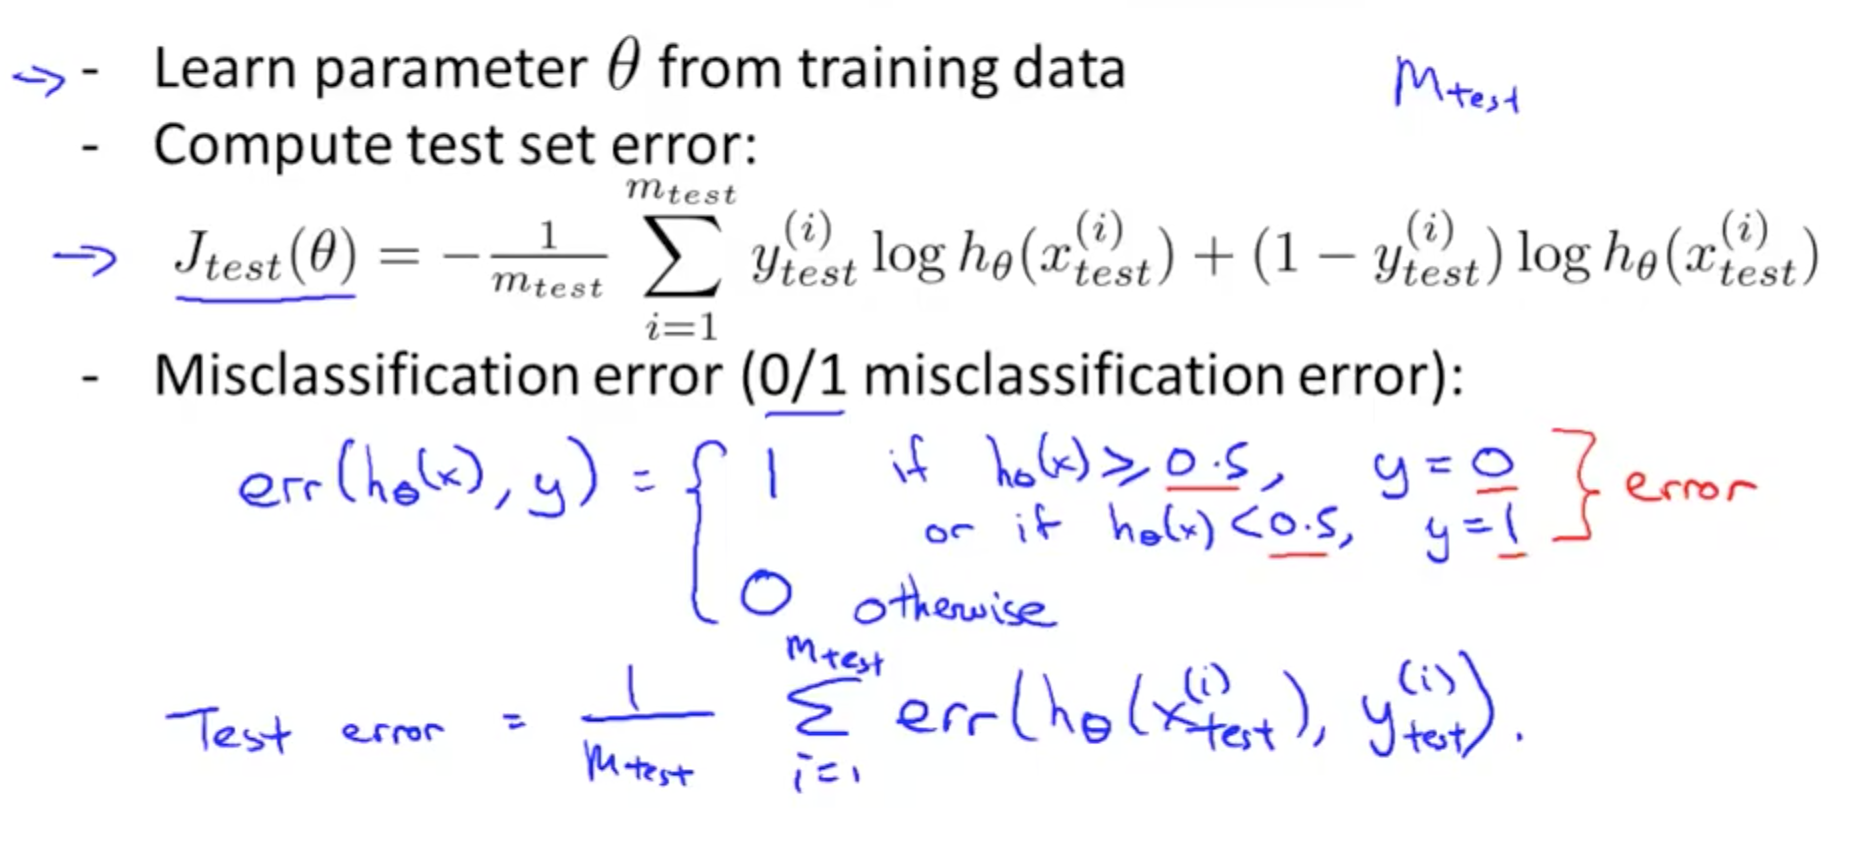 - Learn parameter θ from training data
Mtest
- Compute test set error:
J_{test}(θ) = -\frac{1}{m_{test}} \sum_{i=1}^{m_{test}} y_{test}^{(i)} log h_θ(x_{test}^{(i)}) + (1 - y_{test}^{(i)}) log h_θ(x_{test}^{(i)})
- Misclassification error (0/1 misclassification error):
err(h_θ(x), y) = { 1 if h_θ(x) ≥ 0.5, y = 0 } error
or if h_θ(x) < 0.5, y = 1
0 otherwise
Test error = \frac{1}{m_{test}} \sum_{i=1}^{m_{test}} err(h_θ(x_{test}^{(i)}), y_{test}^{(i)}).